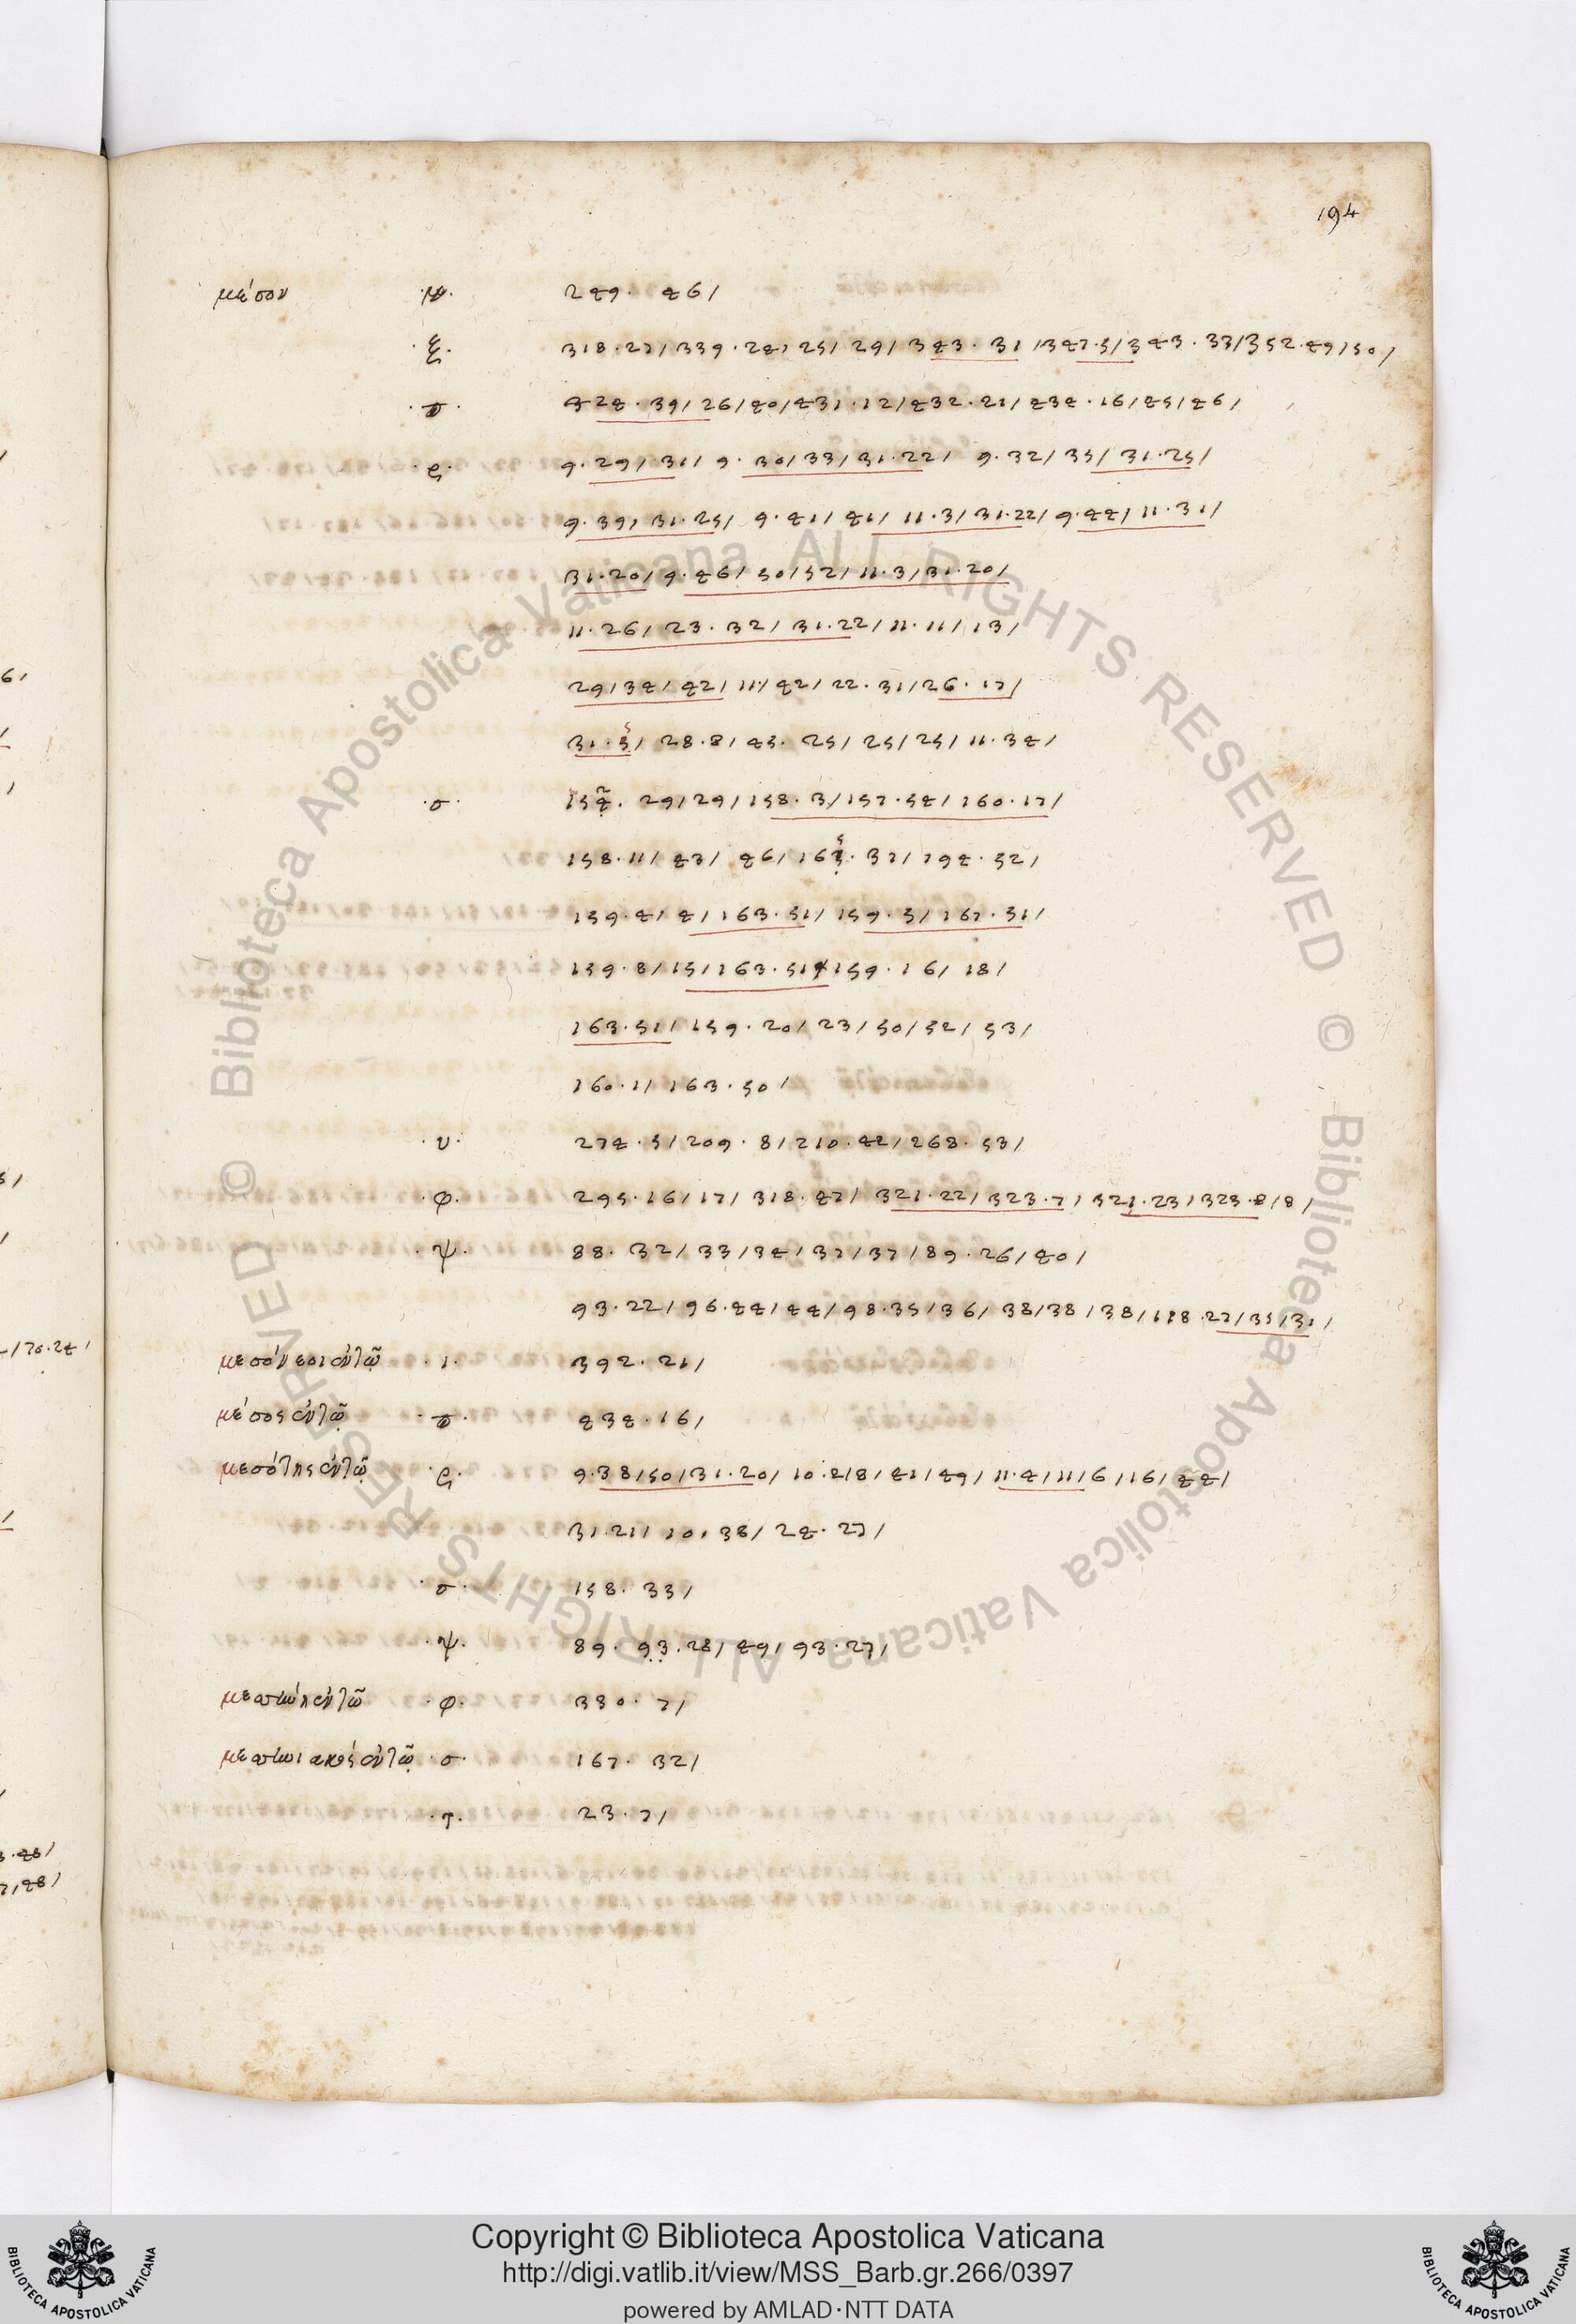 194
μέσον ·ν· 249· 46/
·ξ· 318·27/339·24/25/29/343·31/347·5/343·37/352·49/50/
·π· 324·39/26/40/431·12/432·21/434·16/45/46/
·ρ· 9·29/31/9·30/33/31·22/ 9·32/35/31·25/
9·39/31·25/ 9·41/41/11·3/31·22/9·44/11·31/
31·20/9·46/50/52/11·3/31·20/
11·26/23·32/31·22/11·11/13/
29/34/42/11·/42/22·31/26·17/
31·5/ 28·8/45·25/25/25/11·34/
·σ· 157·29/29/158·3/157·54/160·17/
158·11/47/46/165·37/194·52/
159·4/4/163·51/159·5/167·51/
159·8/15/163·51/159·16/18/
163·51/159·20/23/50/52/53/
160·1/163·50/
·υ· 274·5/209·8/210·42/268·53/
·φ· 295·16/17/318·47/321·22/323·7/321·23/323·8/8/
·ψ· 88·32/33/34/37/37/89·26/40/
93·22/96·44/44/98·35/36/38/38/38/118·27/35/31/
·ι· 392·21/
μέσος ἐν τῷ ·π· 434·16/
μεσότης ἐν τῷ ·ρ· 9·38/50/31·20/10·2/8/41/49/11·4/11/6/16/44/
31·21/10·38/24·27/
·σ· 158·33/
·ψ· 89·93·28/49/93·27/
ἐν τῷ ·φ· 330·7/
ἐν τῷ ·σ· 167·32/
·τ· 23·7/
© Biblioteca Apostolica Vaticana ALL RIGHTS RESERVED © Biblioteca Apostolica Vaticana ALL RIGHTS RESERVED
Copyright © Biblioteca Apostolica Vaticana
http://digi.vatlib.it/view/MSS_Barb.gr.266/0397
powered by AMLAD·NTT DATA
BIBLIOTECA APOSTOLICA VATICANA
BIBLIOTECA APOSTOLICA VATICANA